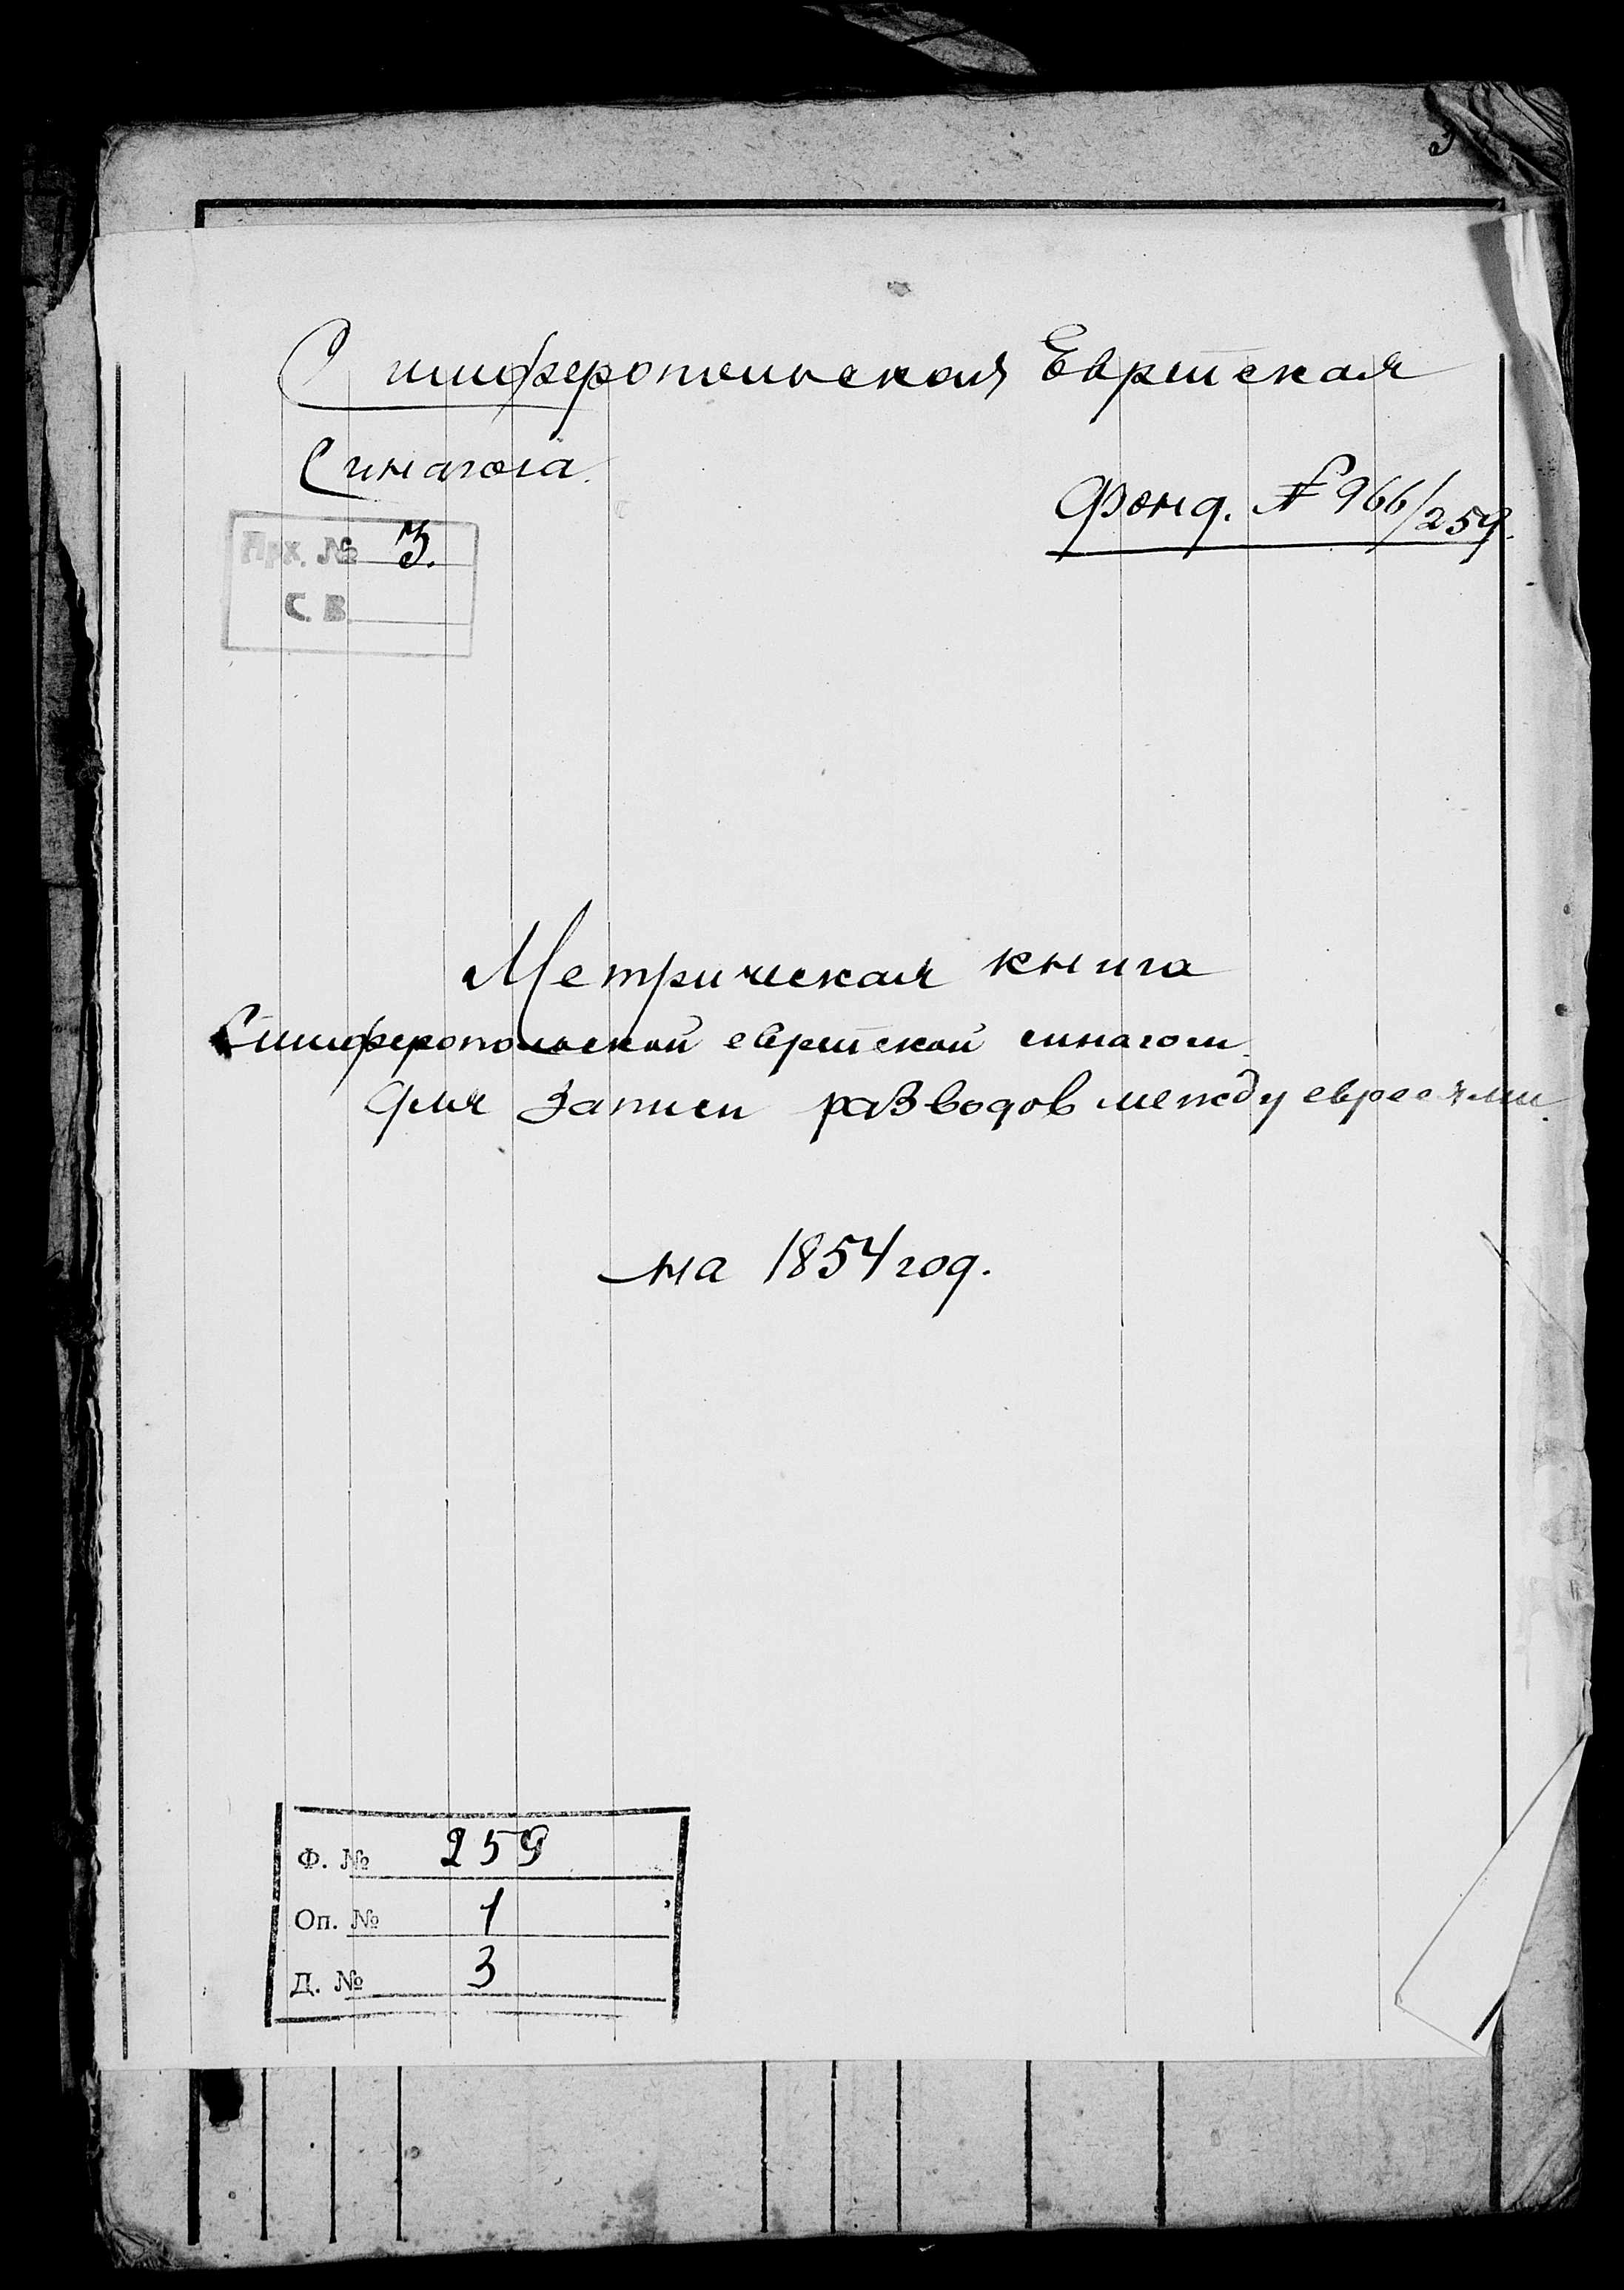 3
Симферопольская Еврейская
Синагога.
Фонд. № 966/259.
Арх. № 3.
С. В.
Метрическая книга
Симферопольской еврейской синагоги
для записи разводов между евреями.
на 1854 год.
Ф. № 259
Оп. № 1
Д. № 3